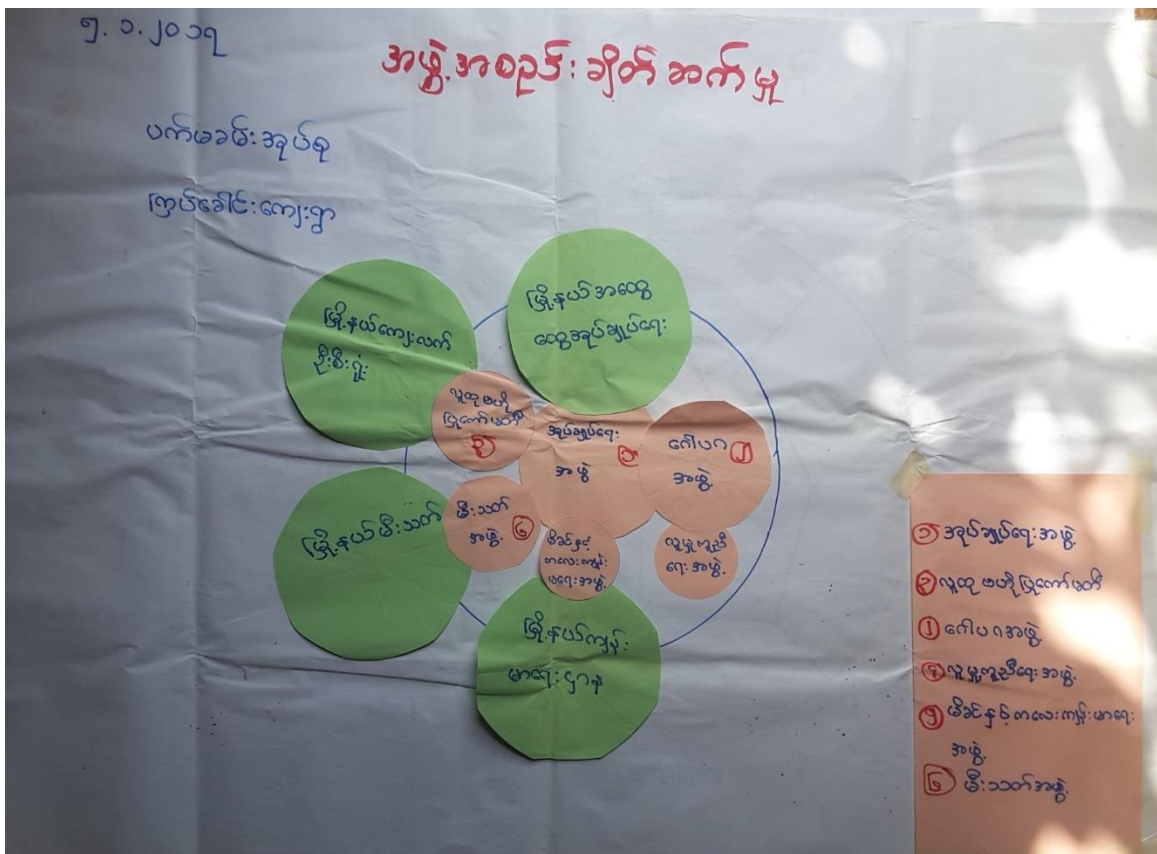 ၅.၁.၂၀၁၇
အဖွဲ့အစည်းချိတ်ဆက်မှု
ပက်မခမ်းအုပ်စု
ကြပ်ခေါင်းကျေးရွာ
မြို့နယ်ကျေးလက်
ဦးစီးရုံး
မြို့နယ်အထွေ
ထွေအုပ်ချုပ်ရေး
လူထုဗဟို
ပြုကော်မတီ
အုပ်ချုပ်ရေး
အဖွဲ့
ဂေါပက
အဖွဲ့
မြို့နယ်မီးသတ်
မီးသတ်
အဖွဲ့ ၆
မိခင်နှင့်
ကလေးကျန်း
မာရေးအဖွဲ့
လူမှုကူညီ
ရေးအဖွဲ့
မြို့နယ်ကျန်း
မာရေးဌာန
၁ အုပ်ချုပ်ရေးအဖွဲ့
၃ လူထုဗဟိုပြုကော်မတီ
၂ ဂေါပကအဖွဲ့
၄ လူမှုကူညီရေးအဖွဲ့
၅ မိခင်နှင့်ကလေးကျန်းမာရေး
အဖွဲ့
၆ မီးသတ်အဖွဲ့